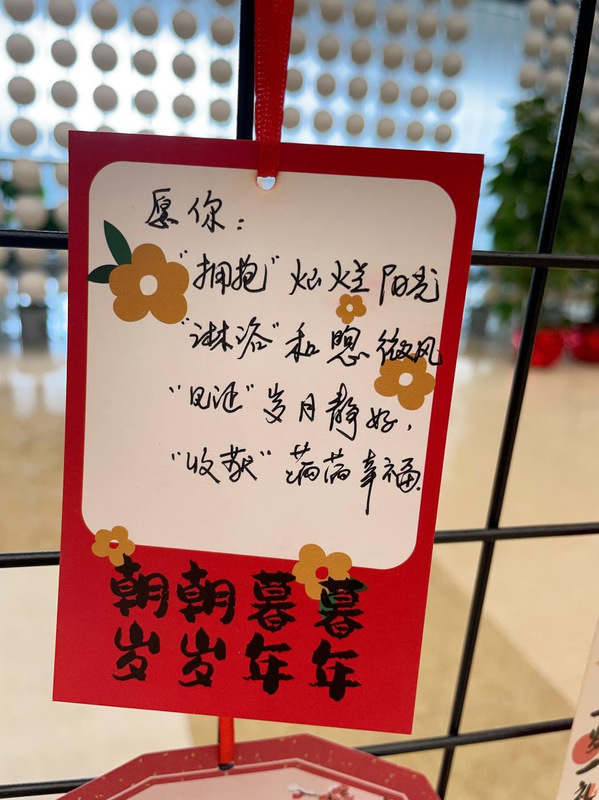 愿你：
"拥抱"灿烂阳光
"淋浴"和煦微风
"见证"岁月静好，
"收获"满满幸福.
朝朝暮暮
岁岁年年